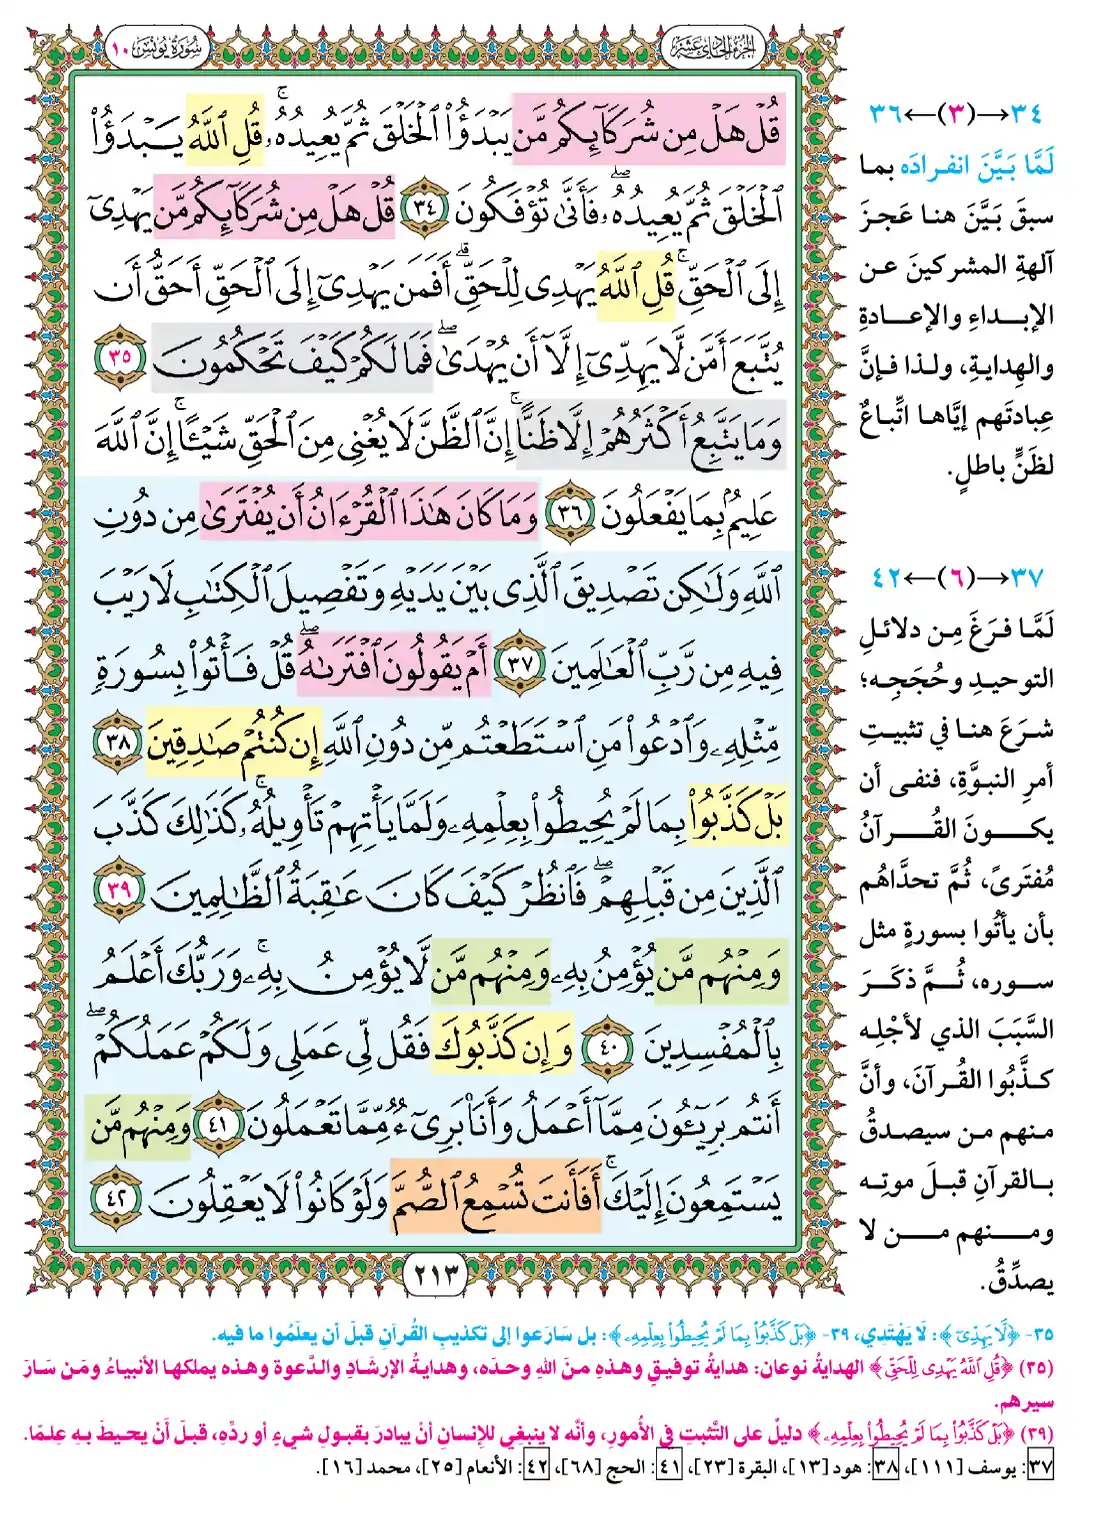 الجزء الحادي عشر
سورة يونس ١٠
قُلْ هَلْ مِن شُرَكَآئِكُم مَّن يَبْدَؤُا۟ ٱلْخَلْقَ ثُمَّ يُعِيدُهُۥ ۚ قُلِ ٱللَّهُ يَبْدَؤُا۟
ٱلْخَلْقَ ثُمَّ يُعِيدُهُۥ ۖ فَأَنَّىٰ تُؤْفَكُونَ ٣٤ قُلْ هَلْ مِن شُرَكَآئِكُم مَّن يَهْدِىٓ
إِلَى ٱلْحَقِّ ۚ قُلِ ٱللَّهُ يَهْدِى لِلْحَقِّ ۗ أَفَمَن يَهْدِىٓ إِلَى ٱلْحَقِّ أَحَقُّ أَن
يُتَّبَعَ أَمَّن لَّا يَهِدِّىٓ إِلَّآ أَن يُهْدَىٰ ۖ فَمَا لَكُمْ كَيْفَ تَحْكُمُونَ ٣٥
وَمَا يَتَّبِعُ أَكْثَرُهُمْ إِلَّا ظَنًّا ۚ إِنَّ ٱلظَّنَّ لَا يُغْنِى مِنَ ٱلْحَقِّ شَيْـًٔا ۚ إِنَّ ٱللَّهَ
عَلِيمٌۢ بِمَا يَفْعَلُونَ ٣٦ وَمَا كَانَ هَٰذَا ٱلْقُرْءَانُ أَن يُفْتَرَىٰ مِن دُونِ
ٱللَّهِ وَلَٰكِن تَصْدِيقَ ٱلَّذِى بَيْنَ يَدَيْهِ وَتَفْصِيلَ ٱلْكِتَٰبِ لَا رَيْبَ
فِيهِ مِن رَّبِّ ٱلْعَٰلَمِينَ ٣٧ أَمْ يَقُولُونَ ٱفْتَرَىٰهُ ۖ قُلْ فَأْتُوا۟ بِسُورَةٍ
مِّثْلِهِۦ وَٱدْعُوا۟ مَنِ ٱسْتَطَعْتُم مِّن دُونِ ٱللَّهِ إِن كُنتُمْ صَٰدِقِينَ ٣٨
بَلْ كَذَّبُوا۟ بِمَا لَمْ يُحِيطُوا۟ بِعِلْمِهِۦ وَلَمَّا يَأْتِهِمْ تَأْوِيلُهُۥ ۚ كَذَٰلِكَ كَذَّبَ
ٱلَّذِينَ مِن قَبْلِهِمْ ۖ فَٱنظُرْ كَيْفَ كَانَ عَٰقِبَةُ ٱلظَّٰلِمِينَ ٣٩
وَمِنْهُم مَّن يُؤْمِنُ بِهِۦ وَمِنْهُم مَّن لَّا يُؤْمِنُ بِهِۦ ۚ وَرَبُّكَ أَعْلَمُ
بِٱلْمُفْسِدِينَ ٤٠ وَإِن كَذَّبُوكَ فَقُل لِّى عَمَلِى وَلَكُمْ عَمَلُكُمْ ۖ
أَنتُم بَرِيٓـُٔونَ مِمَّآ أَعْمَلُ وَأَنَا۠ بَرِىٓءٌ مِّمَّا تَعْمَلُونَ ٤١ وَمِنْهُم مَّن
يَسْتَمِعُونَ إِلَيْكَ ۚ أَفَأَنتَ تُسْمِعُ ٱلصُّمَّ وَلَوْ كَانُوا۟ لَا يَعْقِلُونَ ٤٢
٢١٣
٣٤→(٣)←٣٦
لَمَّا بَيَّنَ انفرادَه بما
سبقَ بَيَّنَ هنا عَجزَ
آلهةِ المشركينَ عن
الإبداءِ والإعادةِ
والهدايةِ، ولذا فإنَّ
عِبادتَهم إيَّاها اتِّباعٌ
لظَنٍّ باطلٍ.
٣٧→(٦)←٤٢
لَمَّا فرَغَ مِن دلائلِ
التوحيدِ وحُجَجِه؛
شرَعَ هنا في تثبيتِ
أمرِ النبوَّةِ، فنفى أن
يكونَ القُرآنُ
مُفترىً، ثُمَّ تحدَّاهُم
بأن يأتُوا بسورةٍ مثل
سوره، ثُمَّ ذكَرَ
السَّبَبَ الذي لأجْلِه
كذَّبُوا القرآنَ، وأنَّ
منهم من سيصدقُ
بالقرآنِ قبلَ موتِه
ومنهم من لا
يصدِّقُ.
٣٥- ﴿لَّا يَهِدِّىٓ﴾: لَا يَهْتَدي، ٣٩- ﴿بَلْ كَذَّبُوا۟ بِمَا لَمْ يُحِيطُوا۟ بِعِلْمِهِۦ﴾: بل سَارَعوا إلى تكذيبِ القُرآنِ قبلَ أن يعلَمُوا ما فيه.
(٣٥) ﴿قُلِ ٱللَّهُ يَهْدِى لِلْحَقِّ﴾ الهدايةُ نوعان: هدايةُ توفيقٍ وهذهِ منَ اللهِ وحدَه، وهدايةُ الإرشَادِ والدَّعوةِ وهذه يملكها الأنبياءُ ومَن سَارَ
سيرهم.
(٣٩) ﴿بَلْ كَذَّبُوا۟ بِمَا لَمْ يُحِيطُوا۟ بِعِلْمِهِۦ﴾ دليلٌ على التَّثبتِ في الأمورِ، وأنَّه لا ينبغي للإنسانِ أنْ يبادرَ بقبولِ شيءٍ أو ردِّهِ، قبلَ أَنْ يحيطَ بهِ عِلمًا.
٣٧: يوسف [١١١]، ٣٨: هود [١٣]، البقرة [٢٣]، ٤١: الحج [٦٨]، ٤٢: الأنعام [٢٥]، محمد [١٦].